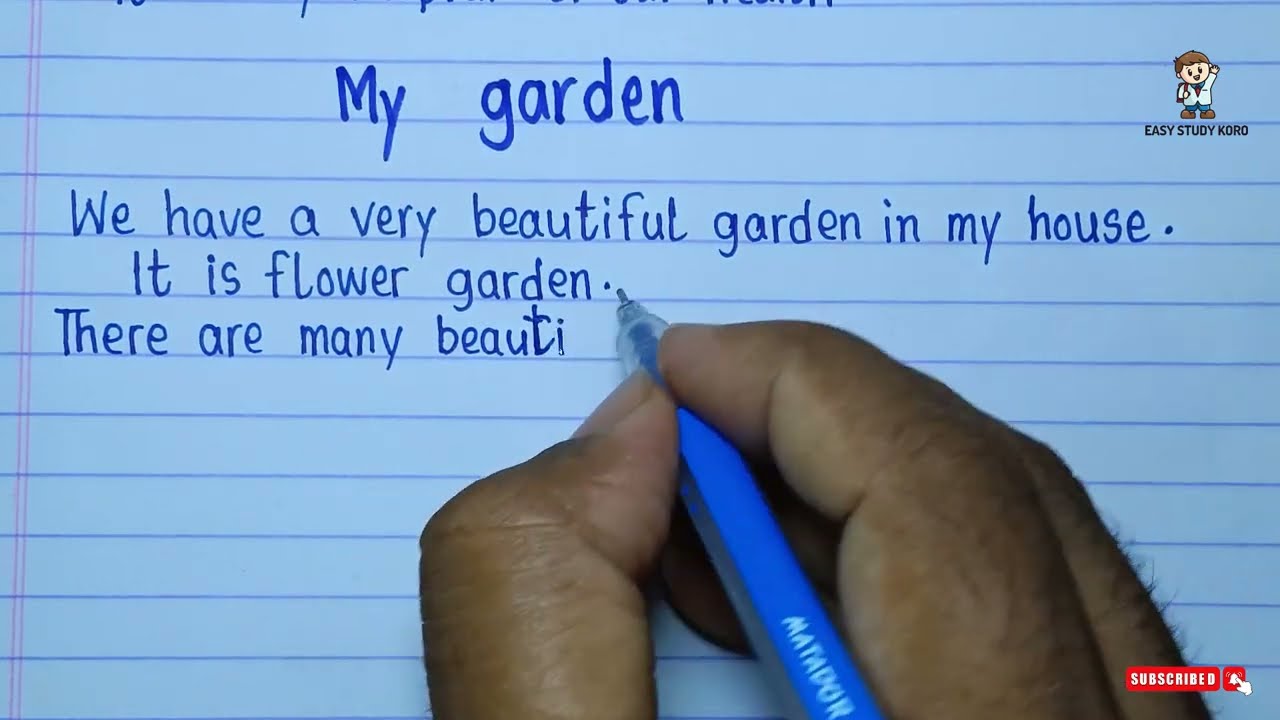 My garden
EASY STUDY KORO
We have a very beautiful garden in my house.
It is flower garden.
There are many beauti
MATADOR
SUBSCRIBED